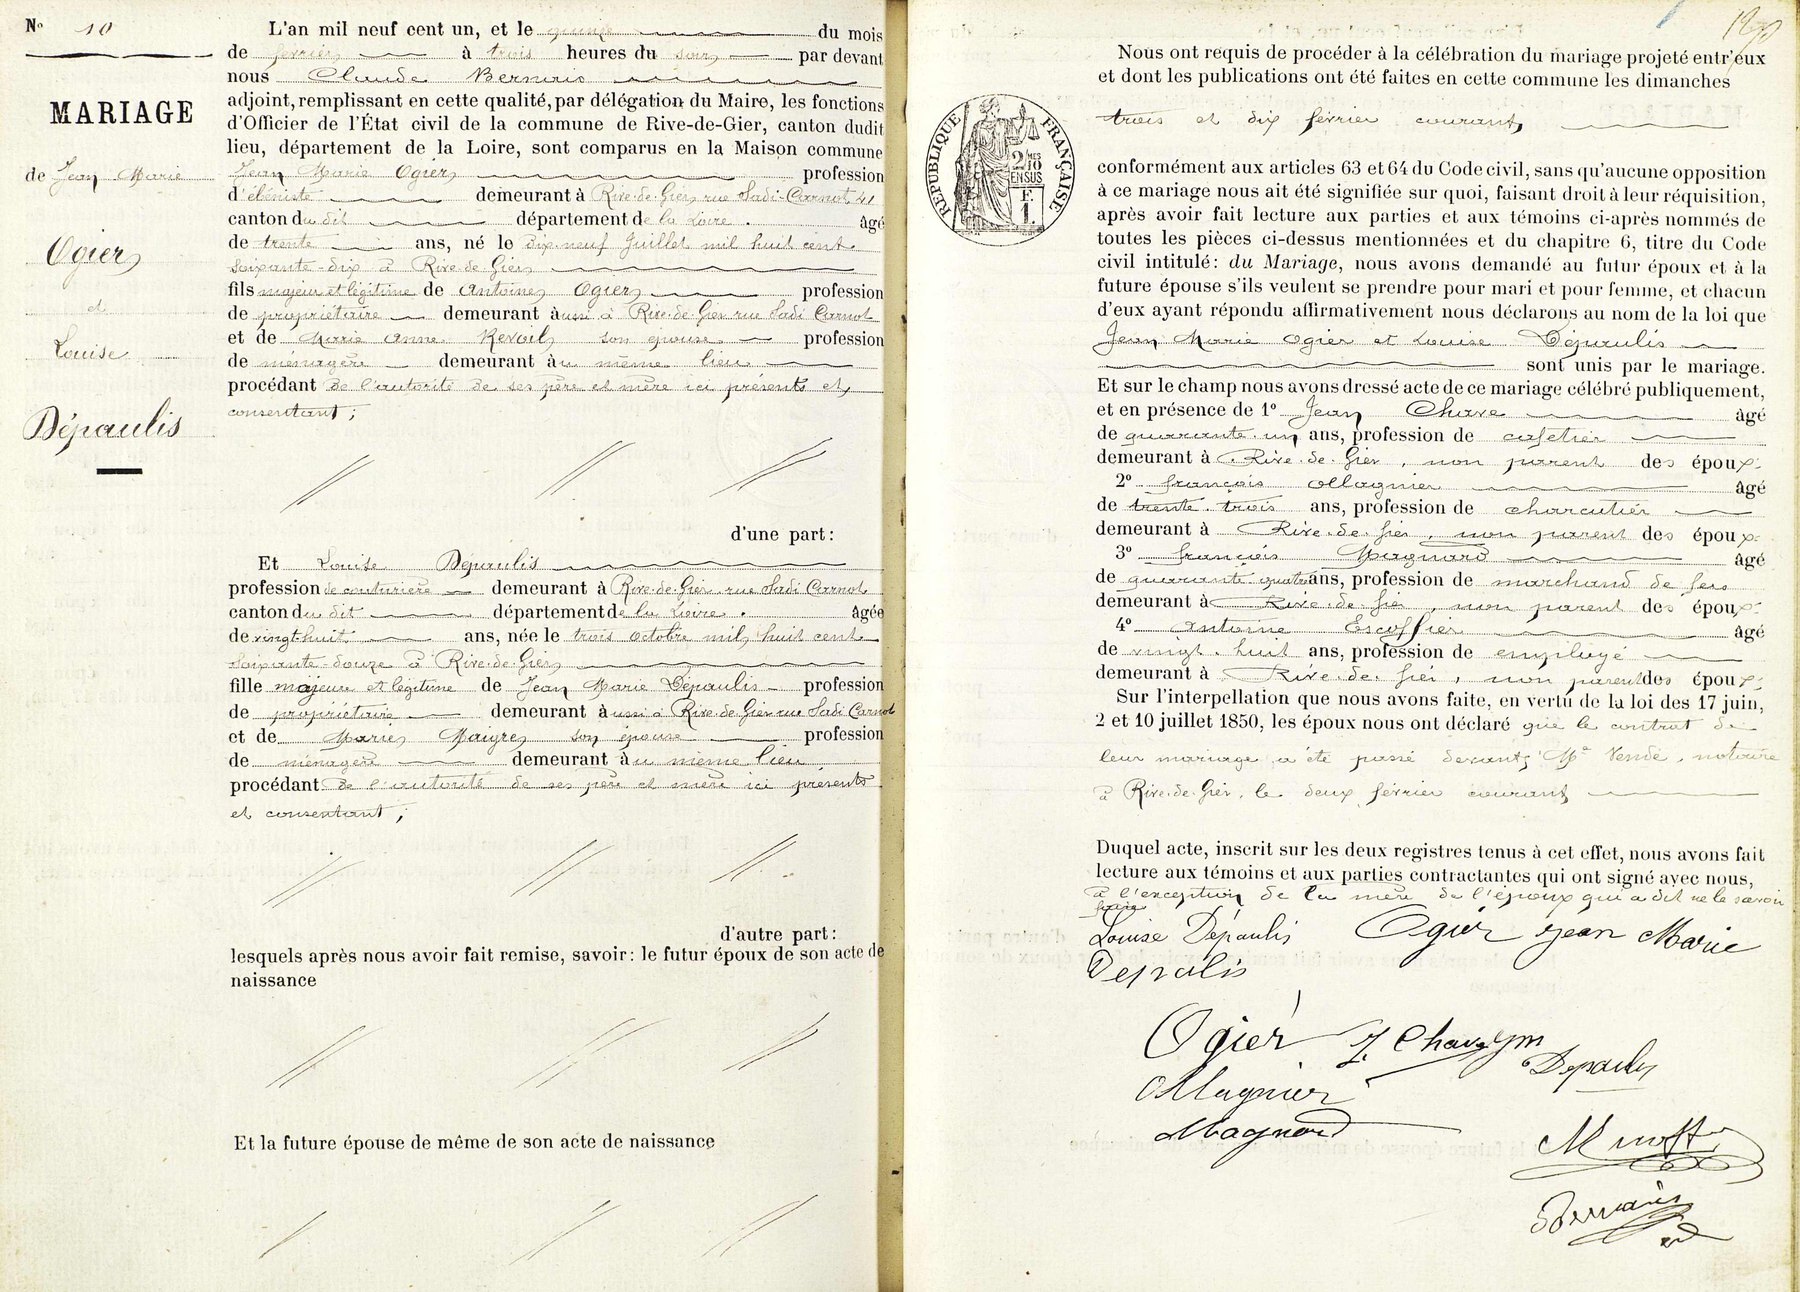 N° 10
MARIAGE
de Jean Marie
Ogier
et
Louise
Dépaulis
L'an mil neuf cent un, et le quinze du mois
de février à trois heures du soir par devant
nous Claude
adjoint, remplissant en cette qualité, par délégation du Maire, les fonctions
d'Officier de l'État civil de la commune de Rive-de-Gier, canton dudit
lieu, département de la Loire, sont comparus en la Maison commune
Jean Marie Ogier profession
d'ébéniste demeurant à Rive-de-Gier, rue Sadi-Carnot 41
canton du dit département de la Loire. âgé
de trente ans, né le dix-neuf Juillet mil huit cent
soixante-dix à Rive-de-Gier
fils majeur et légitime de Antoine Ogier profession
de propriétaire demeurant aussi à Rive-de-Gier rue Sadi Carnot
et de Marie Anne Revoil son épouse profession
de ménagère demeurant au même lieu
procédant de l'autorité de ses père et mère ici présents et
consentant;
d'une part:
Et Louise Dépaulis
profession de couturière demeurant à Rive-de-Gier rue Sadi Carnot
canton du dit département de la Loire. âgée
de vingt-huit ans, née le trois octobre mil huit cent
soixante-douze à Rive-de-Gier
fille majeure et légitime de Jean Marie Dépaulis profession
de propriétaire demeurant aussi à Rive-de-Gier rue Sadi Carnot
et de Marie Mayre son épouse profession
de ménagère demeurant au même lieu
procédant de l'autorité de ses père et mère ici présents
et consentant;
d'autre part:
lesquels après nous avoir fait remise, savoir: le futur époux de son acte de
naissance
Et la future épouse de même de son acte de naissance
190
Nous ont requis de procéder à la célébration du mariage projeté entr'eux
et dont les publications ont été faites en cette commune les dimanches
trois et dix février courant
RÉPUBLIQUE FRANÇAISE
2/10MES
EN SUS
F.
1.
conformément aux articles 63 et 64 du Code civil, sans qu'aucune opposition
à ce mariage nous ait été signifiée sur quoi, faisant droit à leur réquisition,
après avoir fait lecture aux parties et aux témoins ci-après nommés de
toutes les pièces ci-dessus mentionnées et du chapitre 6, titre du Code
civil intitulé: du Mariage, nous avons demandé au futur époux et à la
future épouse s'ils veulent se prendre pour mari et pour femme, et chacun
d'eux ayant répondu affirmativement nous déclarons au nom de la loi que
Jean Marie Ogier et Louise Dépaulis
sont unis par le mariage.
Et sur le champ nous avons dressé acte de ce mariage célébré publiquement,
et en présence de 1° Jean Chave âgé
de quarante-un ans, profession de cafetier
demeurant à Rive-de-Gier, non parent des époux.
2° françois Ollagnier âgé
de trente-trois ans, profession de charcutier
demeurant à Rive-de-Gier, non parent des époux.
3° françois Magnard âgé
de quarante-quatre ans, profession de marchand de fers
demeurant à Rive-de-Gier, non parent des époux.
4° Antoine Escoffier âgé
de vingt-huit ans, profession de employé
demeurant à Rive-de-Gier, non parent des époux.
Sur l'interpellation que nous avons faite, en vertu de la loi des 17 juin,
2 et 10 juillet 1850, les époux nous ont déclaré que le contrat de
leur mariage a été passé devant Me Vende, notaire
à Rive-de-Gier, le deux février courant
Duquel acte, inscrit sur les deux registres tenus à cet effet, nous avons fait
lecture aux témoins et aux parties contractantes qui ont signé avec nous,
à l'exception de la mère de l'époux qui a dit ne le savoir
faire
Louise Dépaulis Ogier jean Marie
Depalis
Ogier J. Chave
Depaulis
Ollagnier
Magnard